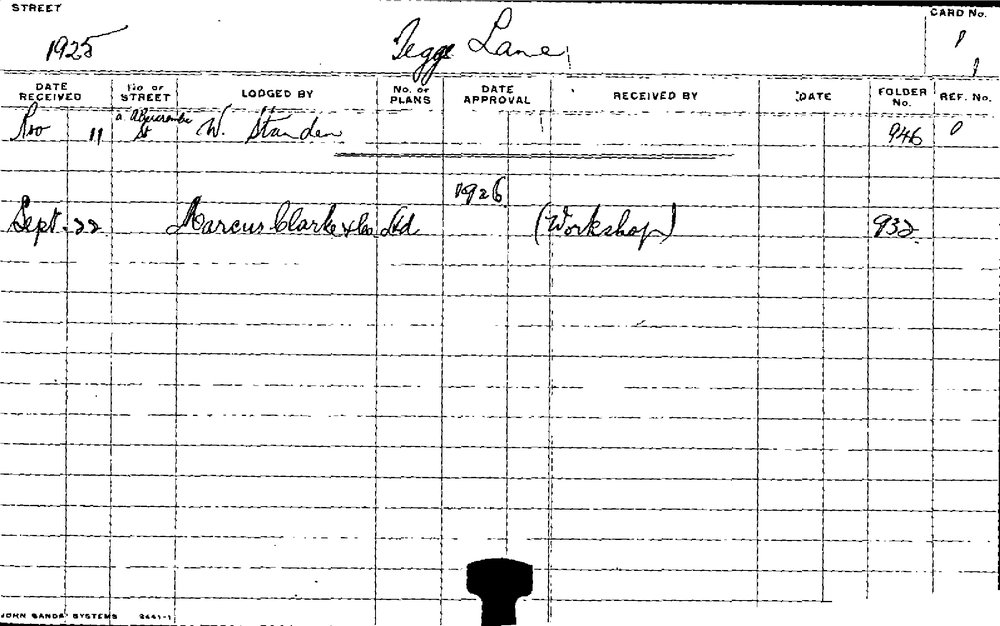 STREET
CARD No.
1925 Teggs Lane 1
1
DATE RECEIVED No. of STREET LODGED BY No. of PLANS DATE APPROVAL RECEIVED BY DATE FOLDER No. REF. No.
Nov 11 Abercrombie St W. Standen 946
1926
Sept. 22 Marcus Clarke & Co Ltd. (Workshop) 932.
JOHN SANDS SYSTEMS 2441-1